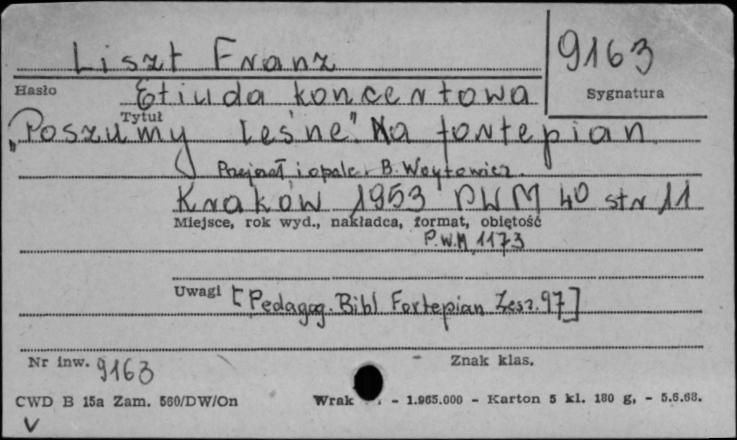 Liszt Franz
9163
Hasło
Etiuda koncertowa
Sygnatura
Tytuł
„Poszumy leśne". Na fortepian
Przejrzał i opalc. B. Woytowicz.
Kraków 1953 PWM 4° str 11
Miejsce, rok wyd., nakładca, format, obiętość
P.W.M 1173
Uwagi [Pedagog. Bibl Fortepian Zesz. 97]
Nr inw. 9163
Znak klas.
CWD B 15a Zam. 560/DW/On
Wrak - 1.965.000 - Karton 5 kl. 180 g, - 5.6.68.
V